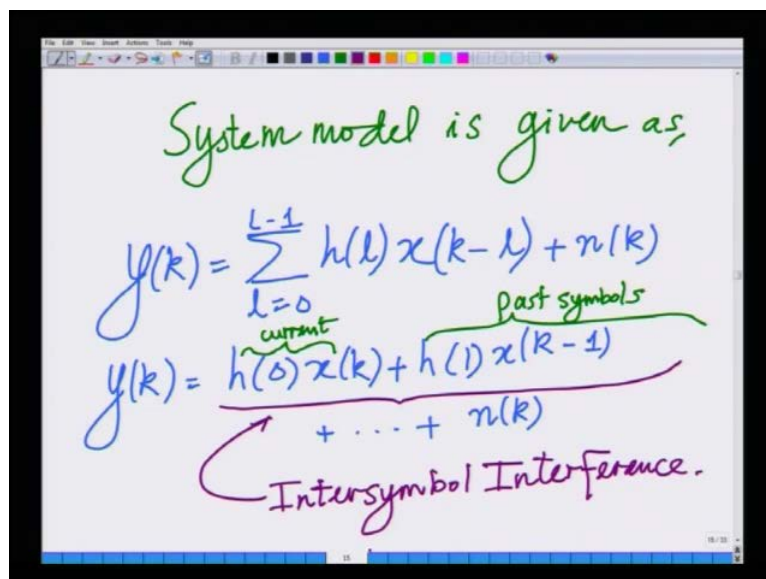 File Edit View Insert Actions Tools Help
System model is given as,
L-1
y(k) = ∑ h(l) x(k-l) + n(k)
l=0
current past symbols
y(k) = h(0) x(k) + h(1) x(k-1)
+ ... + n(k)
Intersymbol Interference.
15